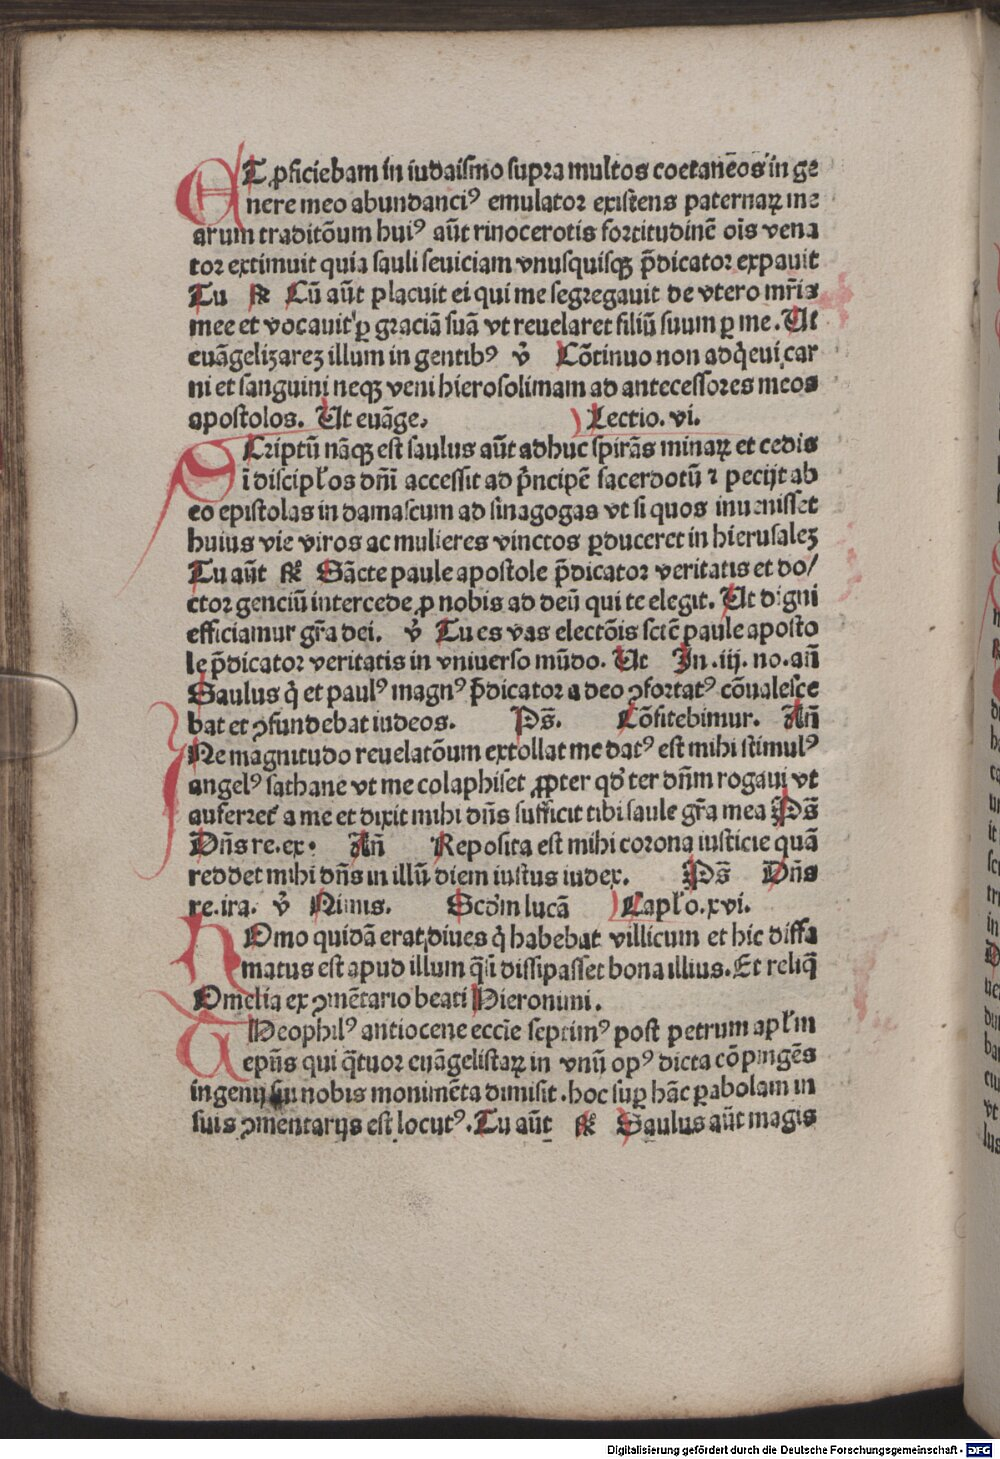 ET ꝓficiebam in iudaismo supra multos coetaneos in ge
nere meo abundanciꝰ emulator existens paternaꝝ me
arum traditōum huiꝰ aūt rinocerotis fortitudinē oīs vena
tor extimuit quia sauli seuiciam vnusquisqꝫ p̄dicator expauit
Tu ℟ Cū aūt placuit ei qui me segregauit de vtero mr̄is
mee et vocauit ꝑ graciā suā vt reuelaret filiū suum ꝑ me. Ut
euāgelizareꝫ illum in gentibꝰ ℣ Cōtinuo non adq̇eui car
ni et sanguini neqꝫ veni hierosolimam ad antecessores meos
apostolos. Ut euāge. Lectio. vi.
SCriptū nāqꝫ est saulus aūt adhuc spirās minaꝝ et cedis
ī discipl̓os dn̄i accessit ad p̓ncipē sacerdotū ⁊ pecijt ab
eo epistolas in damascum ad sinagogas vt si quos inuenisset
huius vie viros ac mulieres vinctos ꝑduceret in hierusaleꝫ
Tu aūt ℟ Sācte paule apostole p̄dicator veritatis et do/
ctor genciū intercede ꝓ nobis ad deū qui te elegit. Ut digni
efficiamur gr̄a dei. ℣ Tu es vas electōis sctē paule aposto
le p̄dicator veritatis in vniuerso mūdo. Ut In .iij. no. an̄
Saulus q̇ et paulꝰ magnꝰ p̄dicator adeo ꝯfortatꝰ cōualesce
bat et ꝯfundebat iudeos. Ps̄. Cōfitebimur. An̄
NE magnitudo reuelatōum extollat me datꝰ est mihi stimulꝰ
angelꝰ sathane vt me colaphiset ꝓpter qd̓ ter dn̄m rogaui vt
auferret̓ a me et dixit mihi dn̄s sufficit tibi saule gr̄a mea Ps̄
Dn̄s re.ex. An̄ Reposita est mihi corona iusticie quā
reddet mihi dn̄s in illū diem iustus iudex. Ps̄ Dn̄s
re.ira. ℣ Nimis. Scd̓m lucā Capl̓o.xvi.
HOmo quidā erat diues q̇ habebat villicum et hic diffa
matus est apud illum q̄si dissipasset bona illius. Et reliq̄
Omelia ex ꝯmētario beati Hieronimi.
THeophilꝰ antiocene eccīe septimꝰ post petrum apl̓m
epūs qui q̄tuor euāgelistaꝝ in vnū opꝰ dicta cōpingēs
ingenij sui nobis monimēta dimisit .hoc suꝑ hāc ꝑabolam in
suis ꝯmentarijs est locutꝰ. Tu aūt ℟ Saulus aūt magis
Digitalisierung gefördert durch die Deutsche Forschungsgemeinschaft - DFG